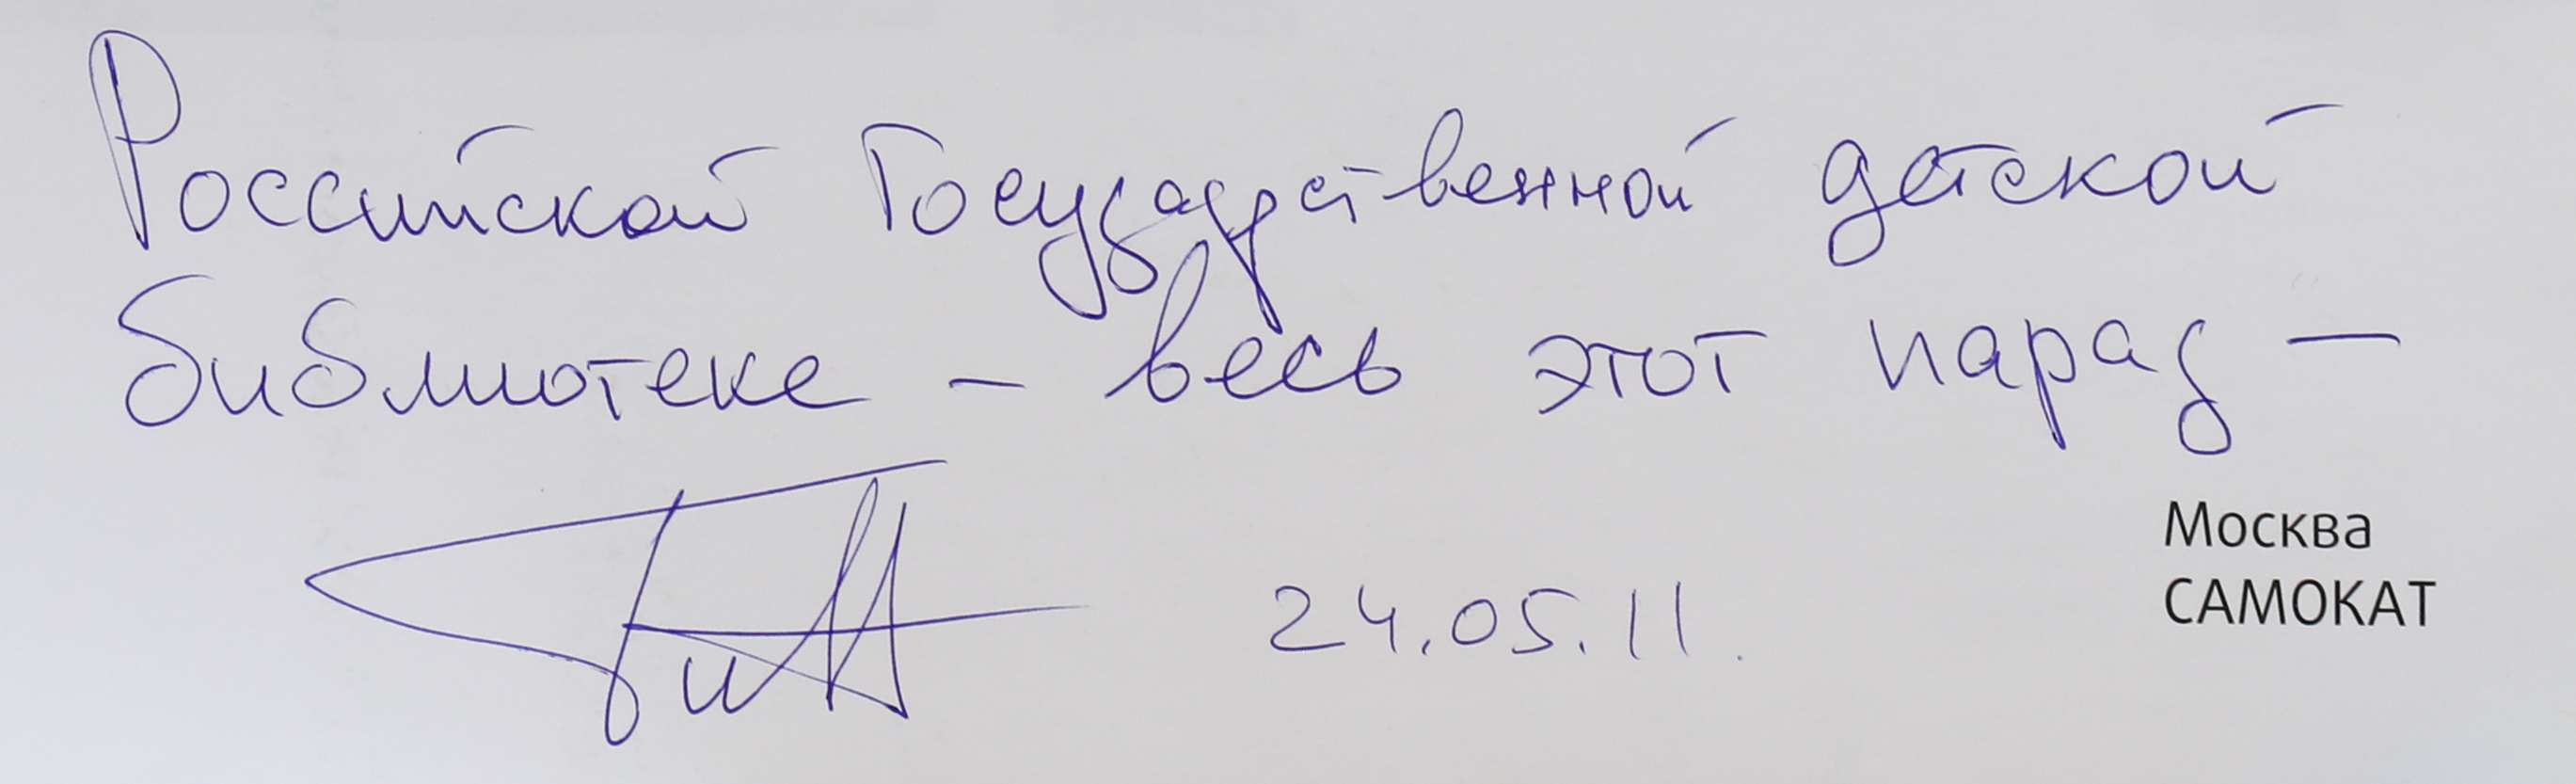 Российской Государственной детской
библиотеке – весь этот парад –
24.05.11.
Москва
САМОКАТ